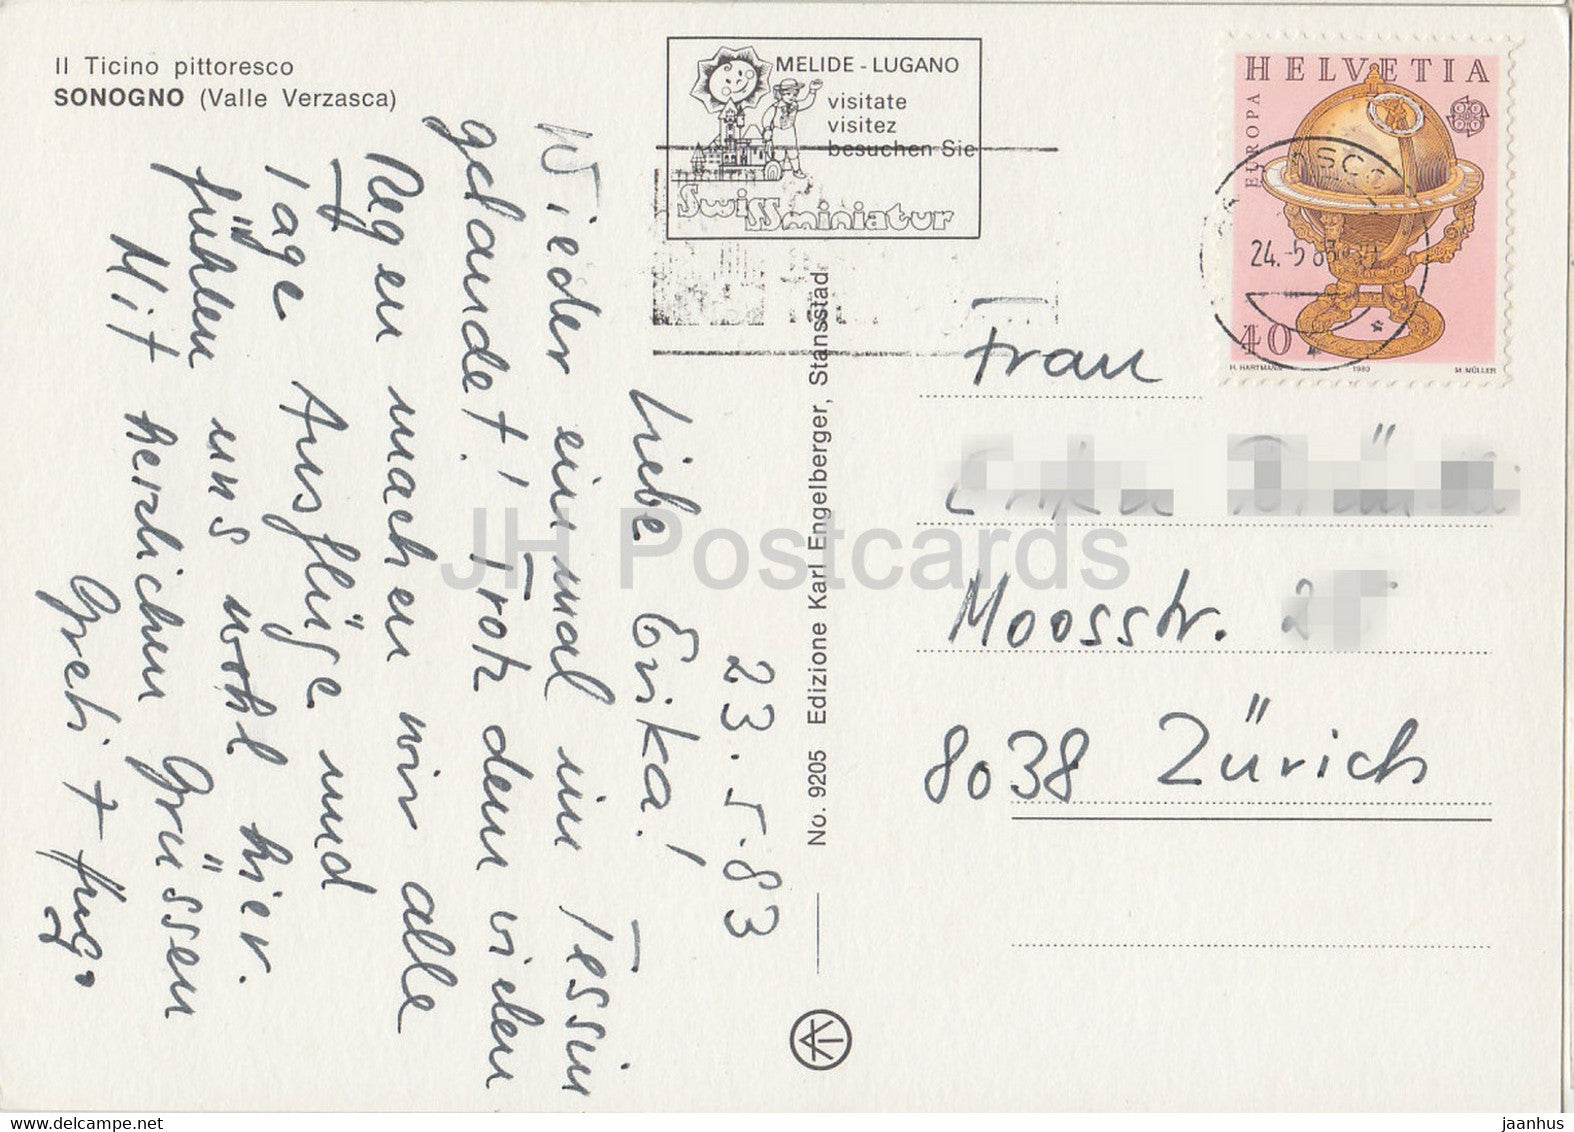 Il Ticino pittoresco
SONOGNO (Valle Verzasca)
MELIDE - LUGANO
visitate
visitez
besuchen Sie
Swissminiatur
HELVETIA
EUROPA
40
H. HARTMANN 1983 M. MÜLLER
24.-5 83
23.5.83
Liebe Erika!
Wieder einmal im Tessin
gelandet! Trotz dem vielen
Regen machen wir alle
Tage Ausflüge und
fühlen uns wohl hier.
Mit herzlichen Grüssen
Greti + Hugo
No. 9205 Edizione Karl Engelberger, Stansstad
Frau
Moosstr.
8038 Zürich
JH Postcards
jaanhus